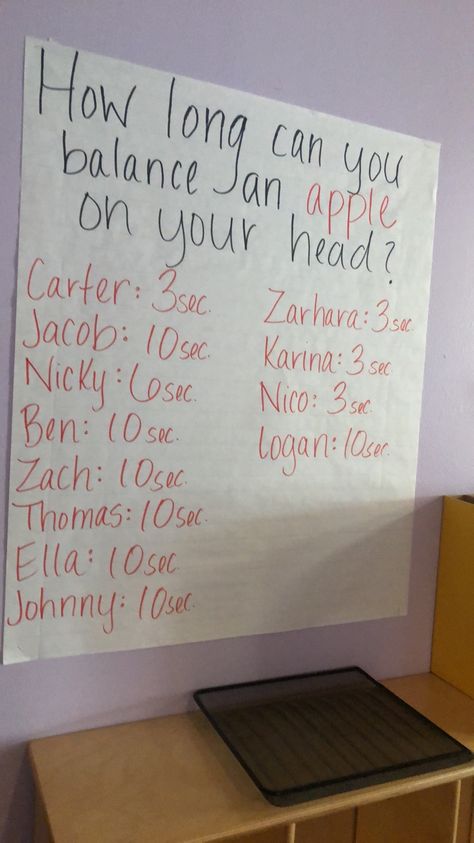 How long can you
balance an apple
on your head?
Carter: 3sec.
Jacob: 10sec.
Nicky: 6sec.
Ben: 10sec.
Zach: 10sec.
Thomas: 10sec.
Ella: 10sec.
Johnny: 10sec.
Zarhara: 3sec.
Karina: 3sec.
Nico: 3sec.
Logan: 10sec.